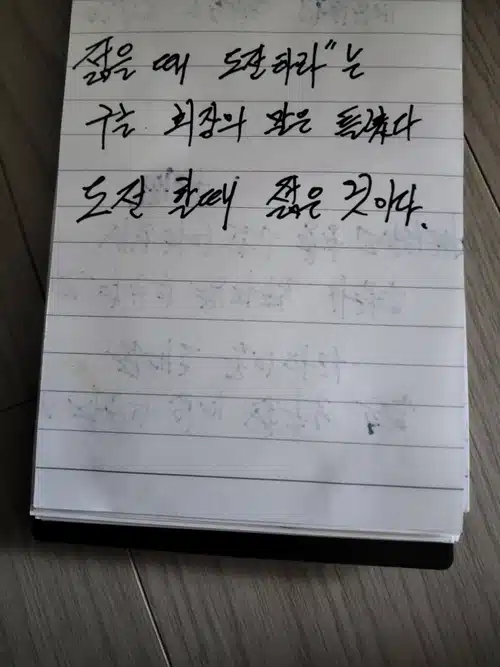 젊을 때 도전하라"는
구글 회장의 말은 틀렸다
도전 할때 젊은 것이다.